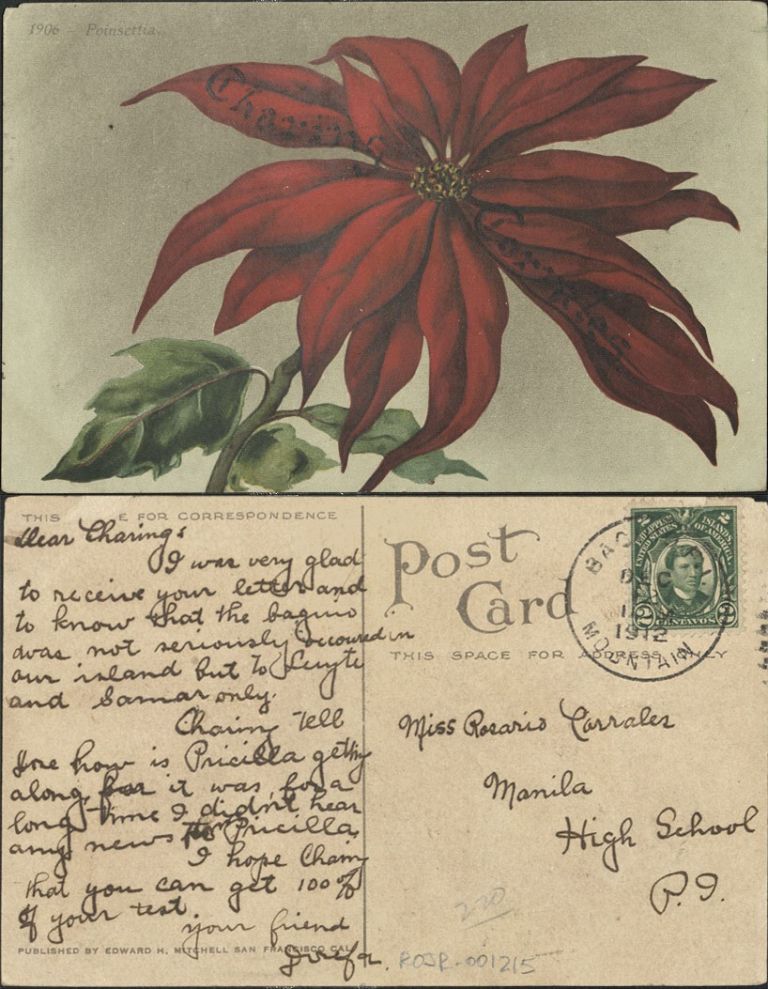 1906 - Poinsettia.
Charing
Corrales
THIS E FOR CORRESPONDENCE
Dear Charing:
I was very glad
to receive your letter and
to know that the baguio
was not seriously occoured in
our island but to Leuyte
and Samar only.
Charing tell
me how is Pricilla getting
along, for it was for a
long time I didn't hear
any news Pricilla
I hope Charing
that you can get 100%
of your test
your friend
PUBLISHED BY EDWARD H. MITCHELL SAN FRANCISCO CAL.
Josefa.
Post
Card
THIS SPACE FOR ADDRESS ONLY
PHILIPPINE ISLANDS
UNITED STATES OF AMERICA
2 CENTAVOS 2
DEC
1912
MOUNTAIN
Miss Rosario Corrales
Manila
High School
P.I.
ROSR-001215